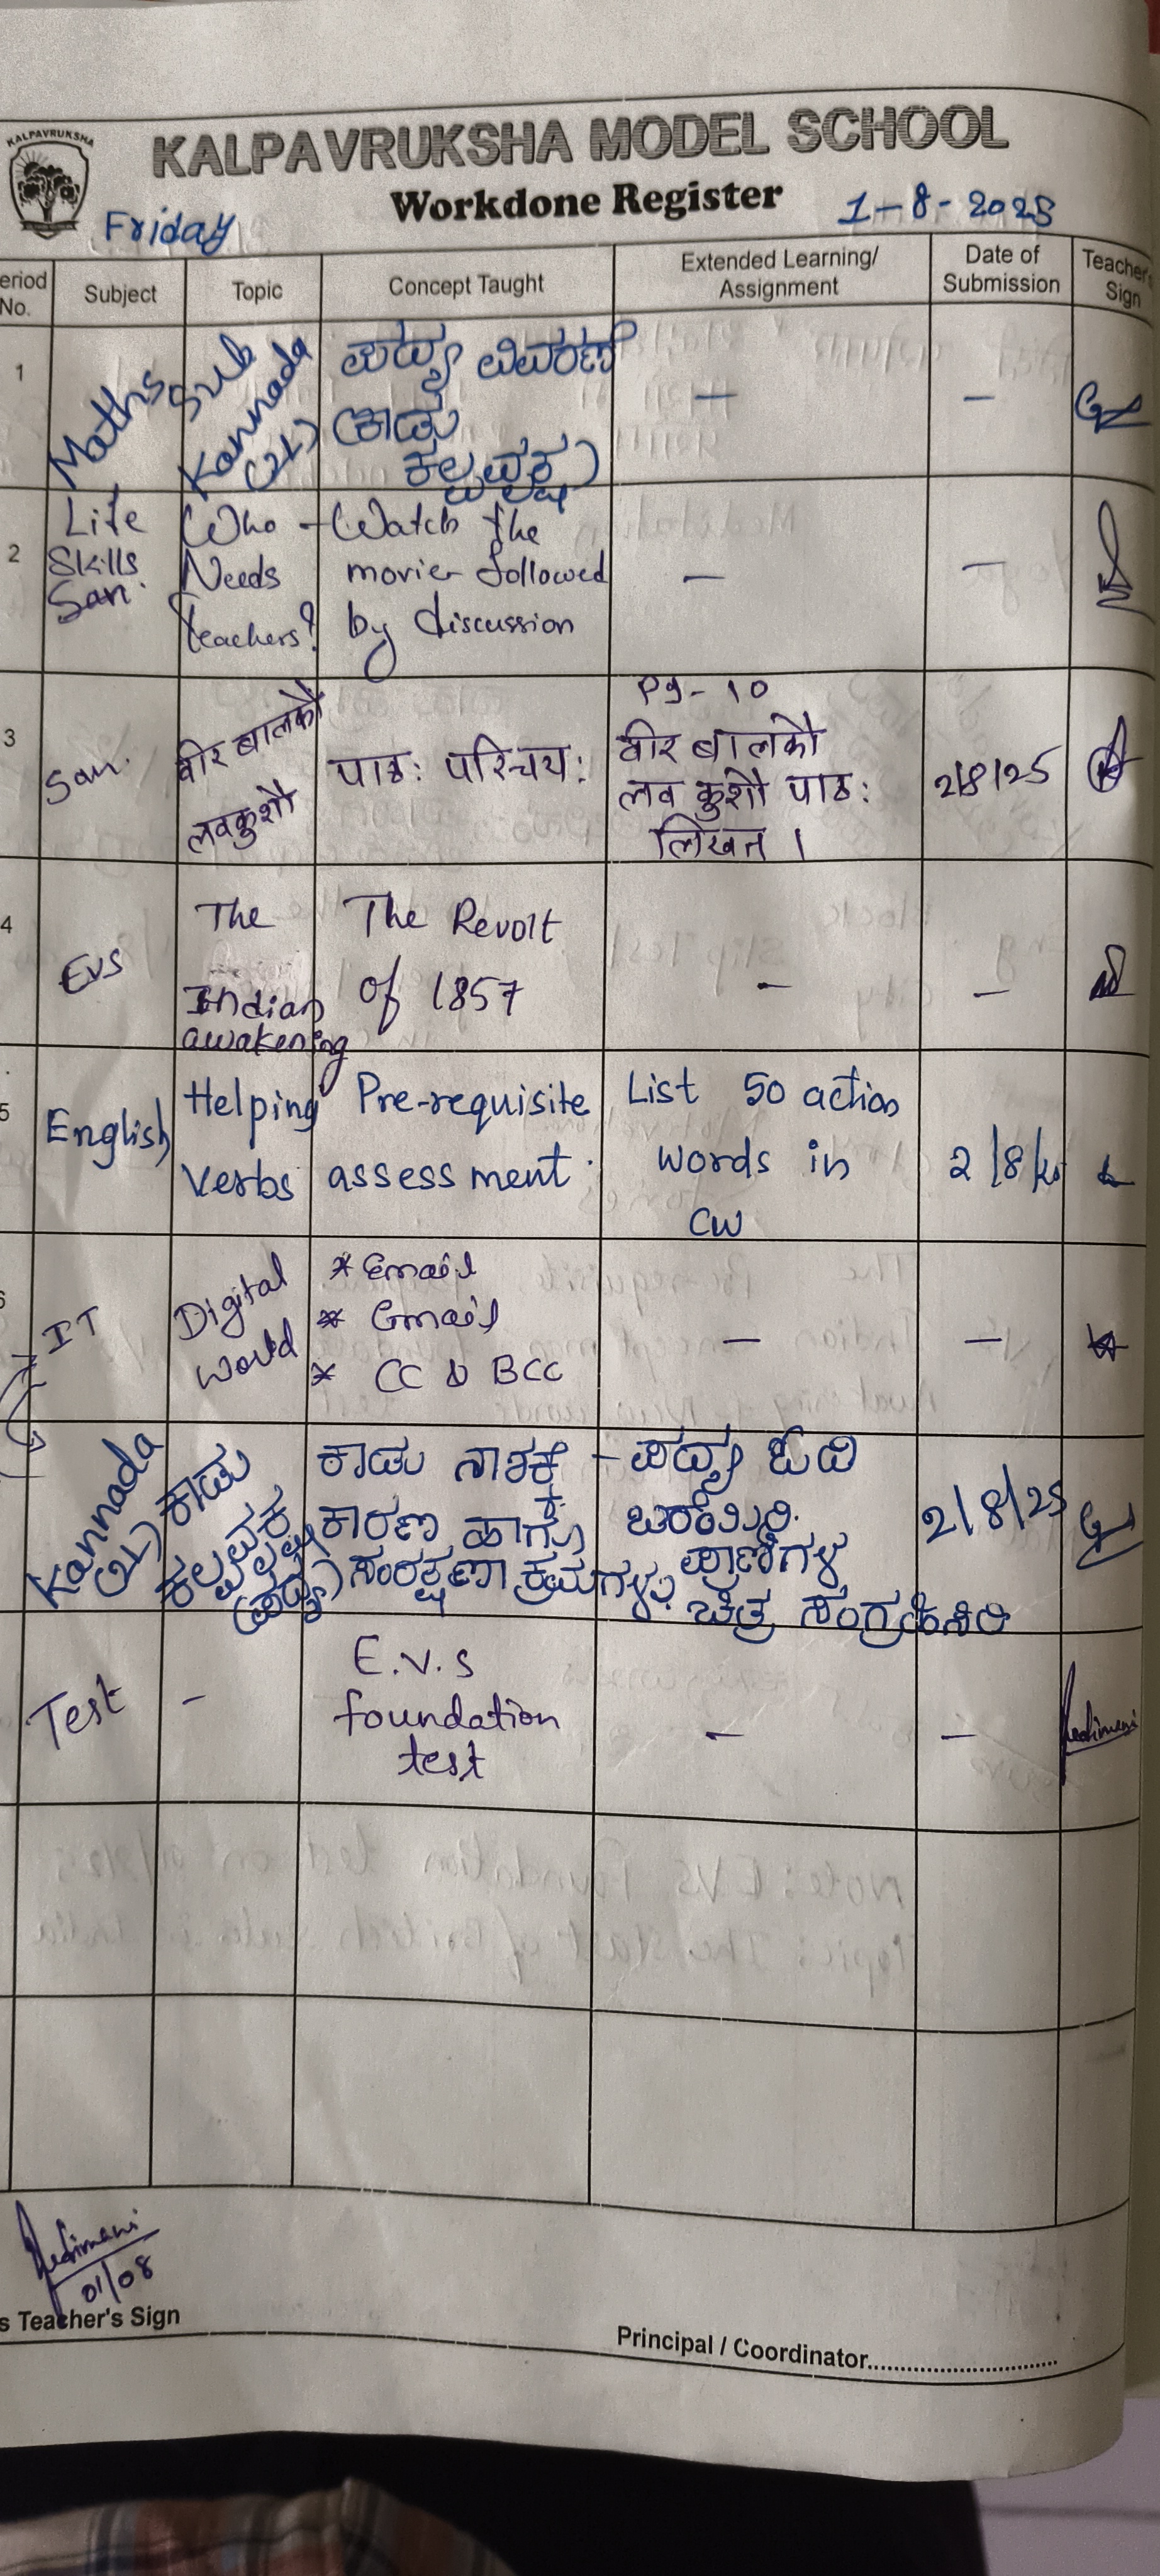 KALPAVRUKSHA
KALPAVRUKSHA MODEL SCHOOL
Workdone Register
Friday
1-8-2025
eriod No.
Subject
Topic
Concept Taught
Extended Learning/
Assignment
Date of
Submission
Teacher's
Sign
1
Maths
Sub
Kannada
(2L)
ಪದ್ಯ ವಿವರಣೆ
(ಕಾಡು
ಕಲ್ಪವೃಕ್ಷ)
—
—
2
Life
Skills
San.
Who
Needs
teachers?
- Watch the
movie followed
by discussion
—
—
3
San.
वीर बालकौ
लवकुशौ
पाठः परिचयः
Pg- 10
वीर बालकौ
लव कुशौ पाठः
लिखत ।
2/8/25
4
EVS
The
Indian
awakening
The Revolt
of 1857
-
-
5
English
Helping
Verbs
Pre-requisite
assessment.
List 50 action
words in
CW
2/8/25
6
IT
Digital
World
* Email
* Gmail
* CC & BCC
—
—
Kannada
(2L)
ಕಾಡು
ಕಲ್ಪವೃಕ್ಷ
(ಪದ್ಯ)
ಕಾಡು ನಾಶಕ್ಕೆ
ಕಾರಣ ಹಾಗೂ
ಸಂರಕ್ಷಣಾ ಕ್ರಮಗಳು
- ಪದ್ಯ ಓದಿ
ಬರೆಯಿರಿ.
ಪ್ರಾಣಿಗಳ
ಚಿತ್ರ ಸಂಗ್ರಹಿಸಿರಿ
2/8/25
Test
-
E.V.S
foundation
test
—
—
01/08
s Teacher's Sign
Principal / Coordinator..............................